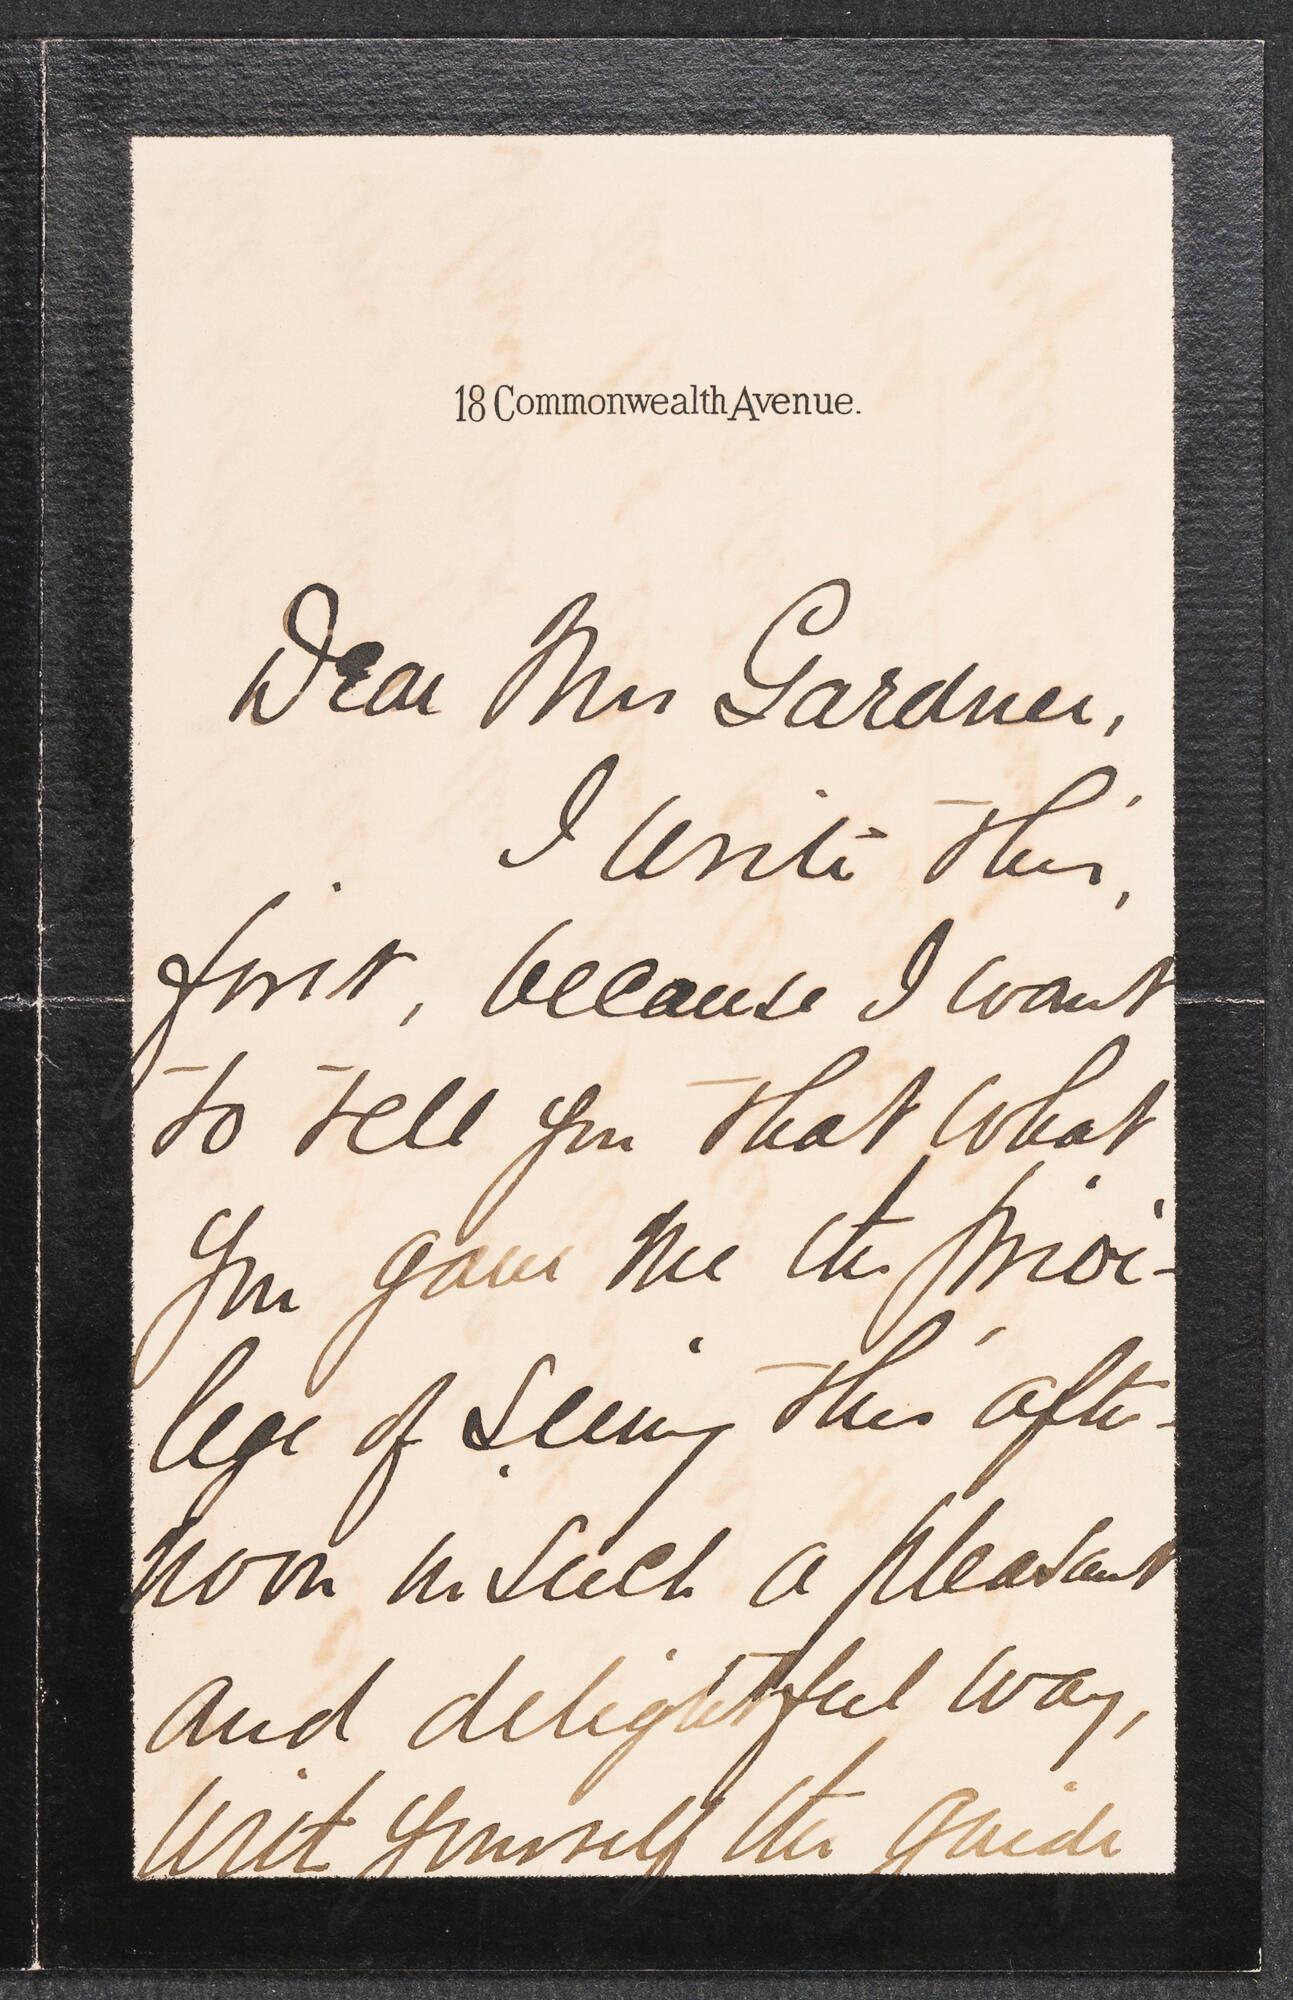 18 Commonwealth Avenue.
Dear Mrs Gardner,
I write this,
first, because I want
to tell you that what
you gave me the privi-
lege of seeing this after-
noon in such a pleasant
and delightful way,
with yourself the guide